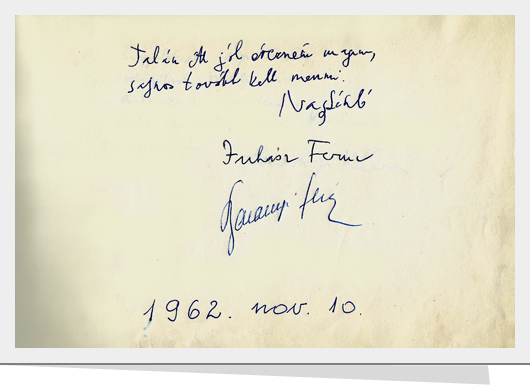 Talán itt jól érezném magam,
sajnos tovább kell menni.
Nagy László
Juhász Ferenc
Baranyi Feri
1962. nov. 10.